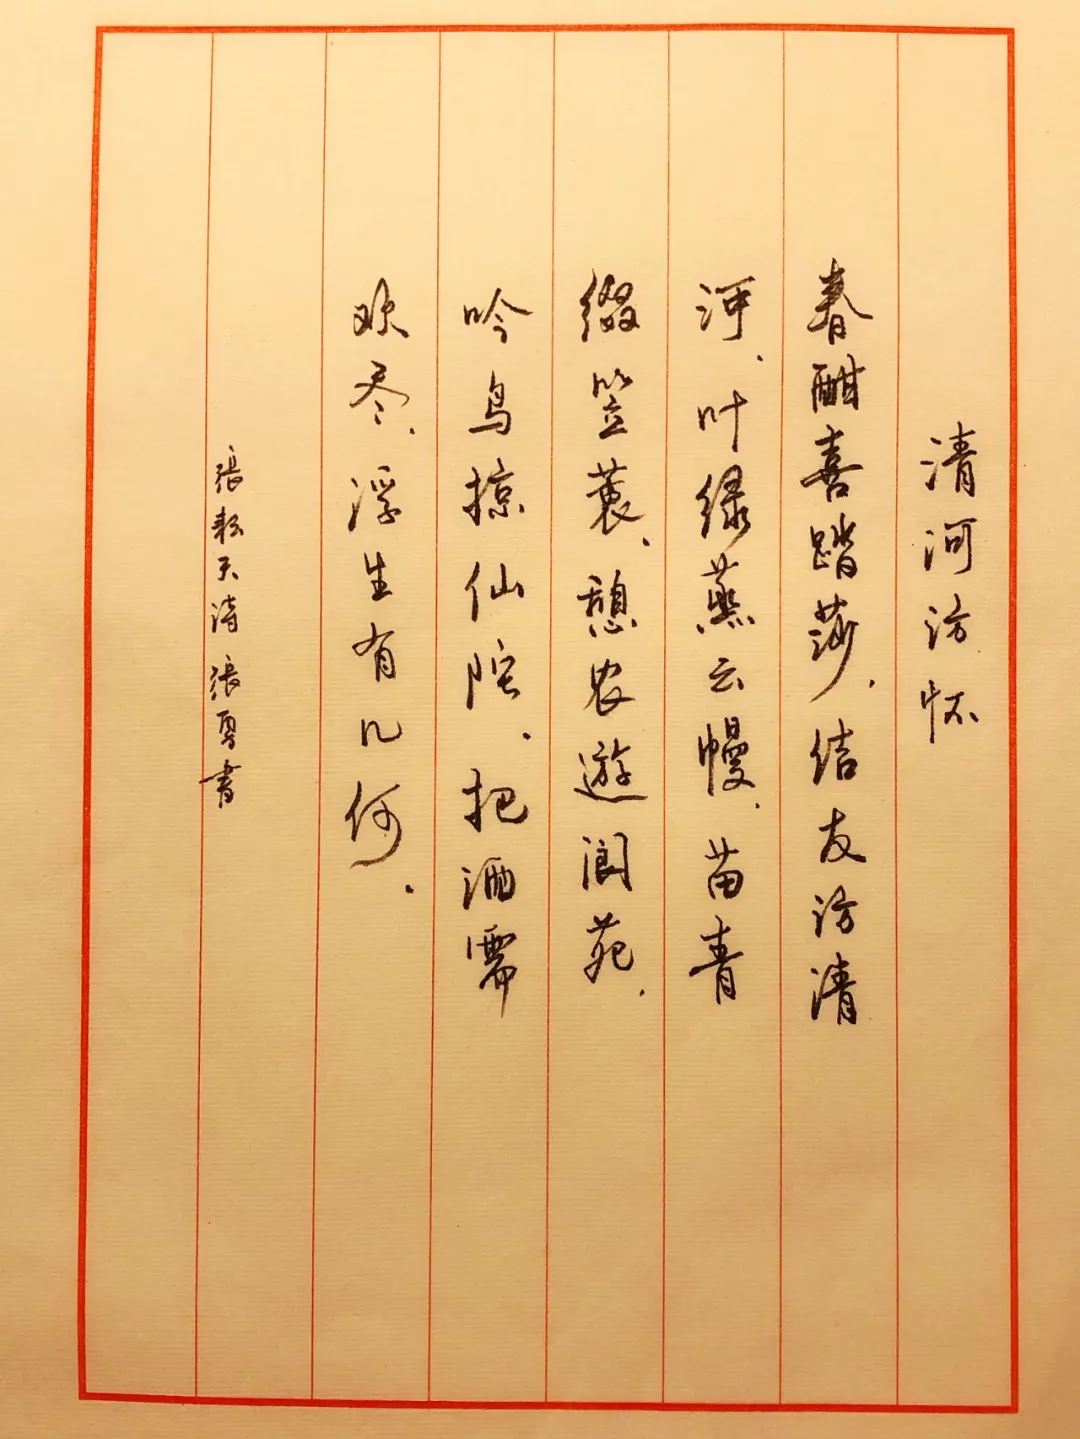 清河访怀
春酣喜踏莎.结友访清
河.叶绿蒸云幔.苗青
缀笠蓑.憩农遊阆苑.
吟鸟掠仙陀.把酒需
欢尽.浮生有几何.
張耘天诗張勇書